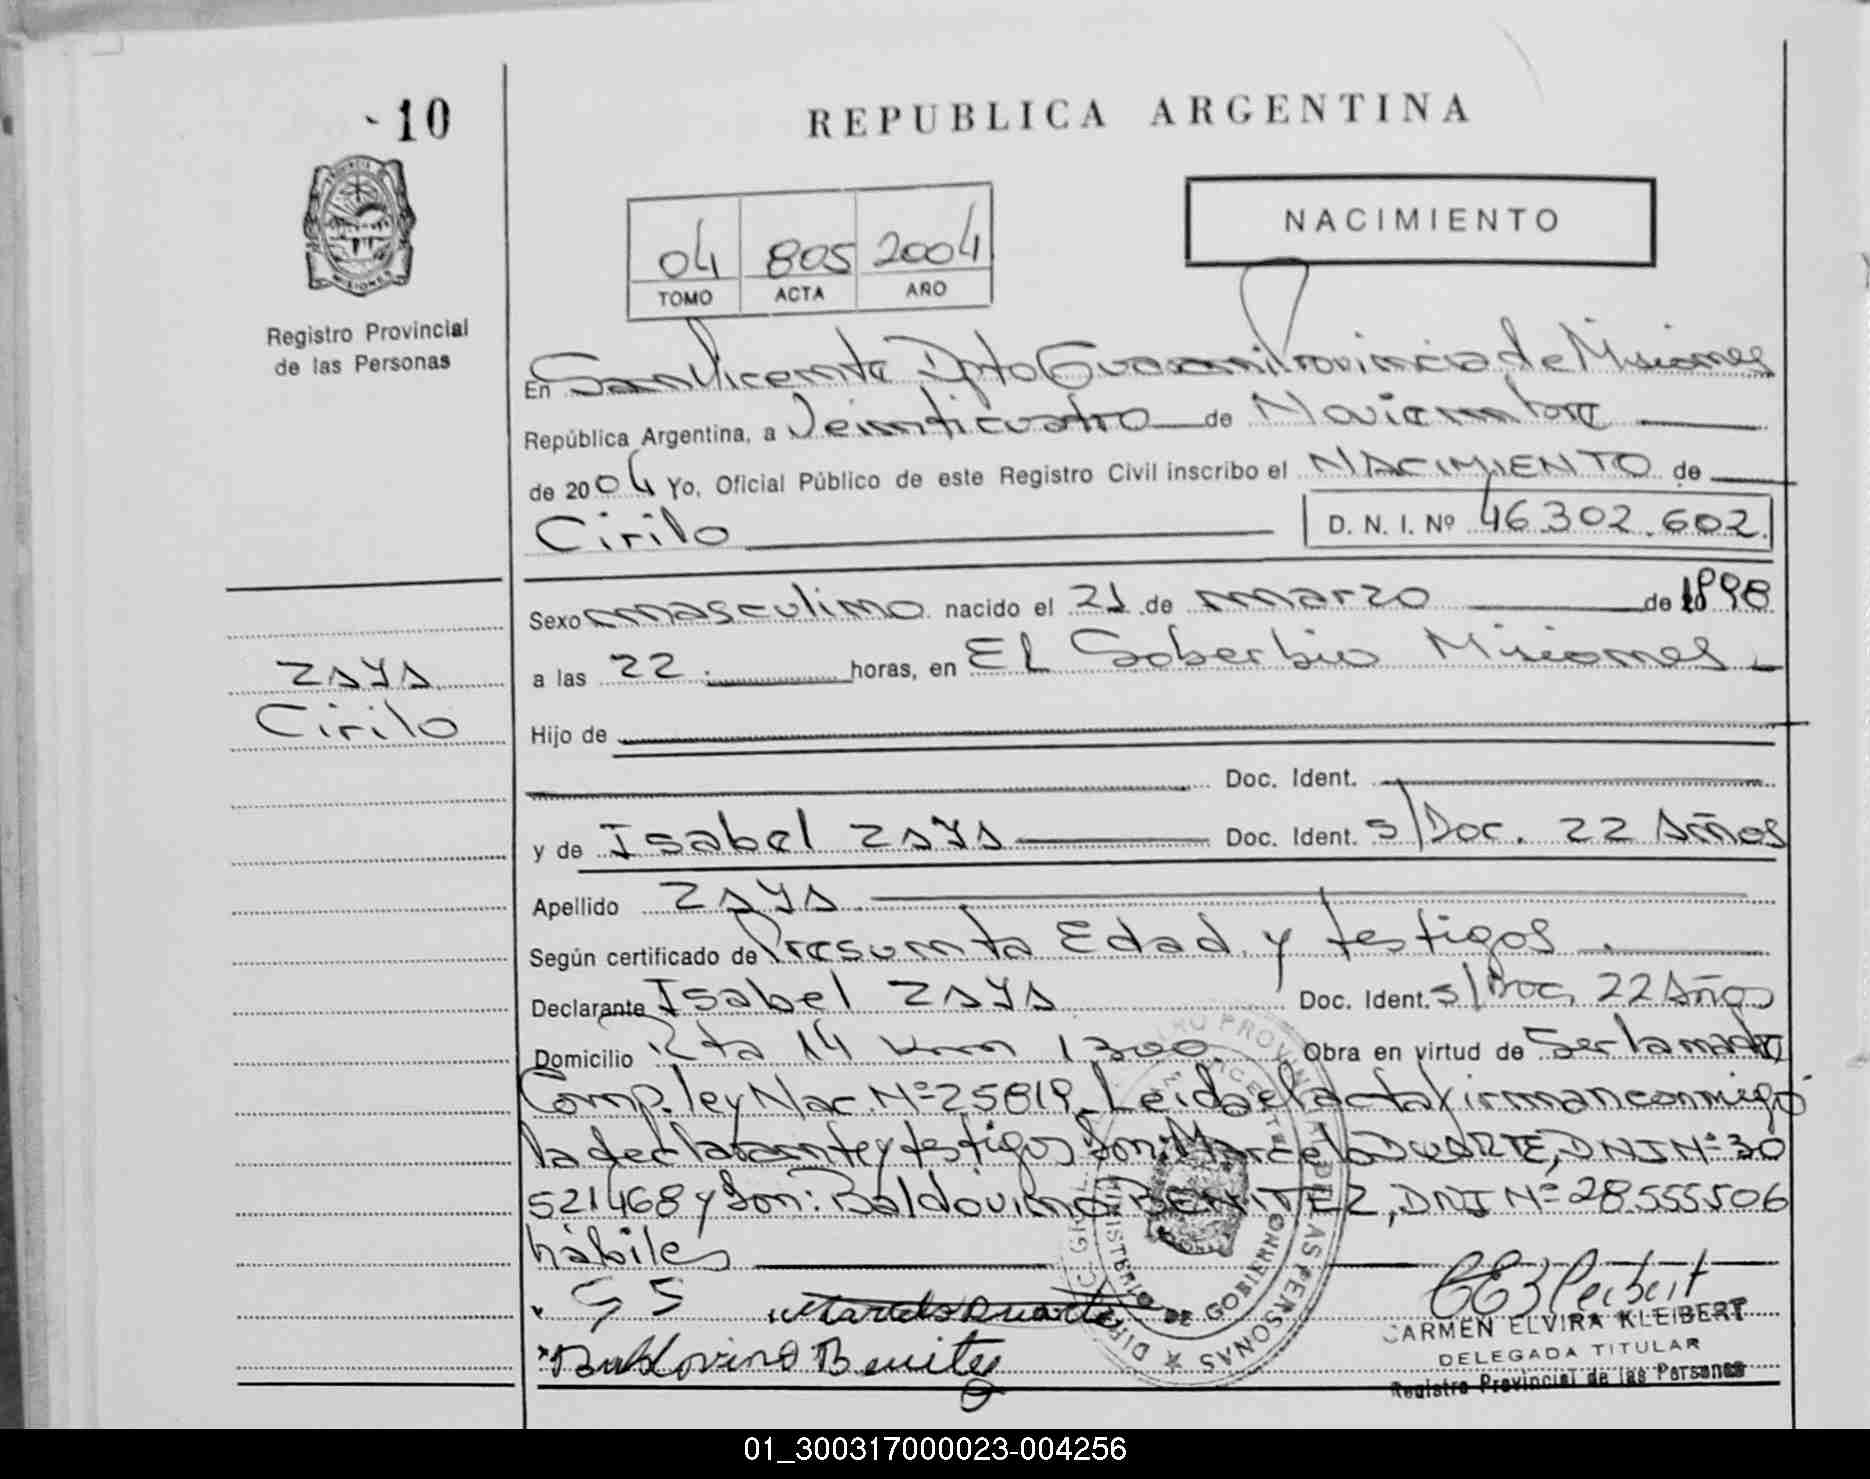 - 10
REPUBLICA ARGENTINA
NACIMIENTO
04 805 2004
TOMO ACTA AÑO
Registro Provincial
de las Personas
En San Vicente Dpto Guarani Provincia de Misiones
República Argentina, a Veinticuatro de Noviembre
de 2004 Yo, Oficial Público de este Registro Civil inscribo el NACIMIENTO de
Cirilo D. N. I. Nº 46.302.602
Sexo masculino nacido el 21 de marzo de 1998
ZAYA
Cirilo
a las 22 horas, en El Soberbio Misiones
Hijo de
Doc. Ident.
y de Isabel ZAYA Doc. Ident. s/Doc. 22 Años
Apellido ZAYA
Según certificado de Presunta Edad y testigos
Declarante Isabel ZAYA Doc. Ident. s/Doc. 22 Años
Domicilio Rta 14 Km 1300 Obra en virtud de Ser la madre
Comp. ley Nac. Nº 25819_ Leida el acta firman conmigo
la declarante y testigos Son: Marcelo DUARTE, DNI Nº 30
521468 y Son: Baldovino BENITEZ, DNI Nº 28.555.506
hábiles
Marcelo Duarte
Baldovino Benitez
CARMEN ELVIRA KLEIBERT
DELEGADA TITULAR
Registro Provincial de las Personas
01_300317000023-004256